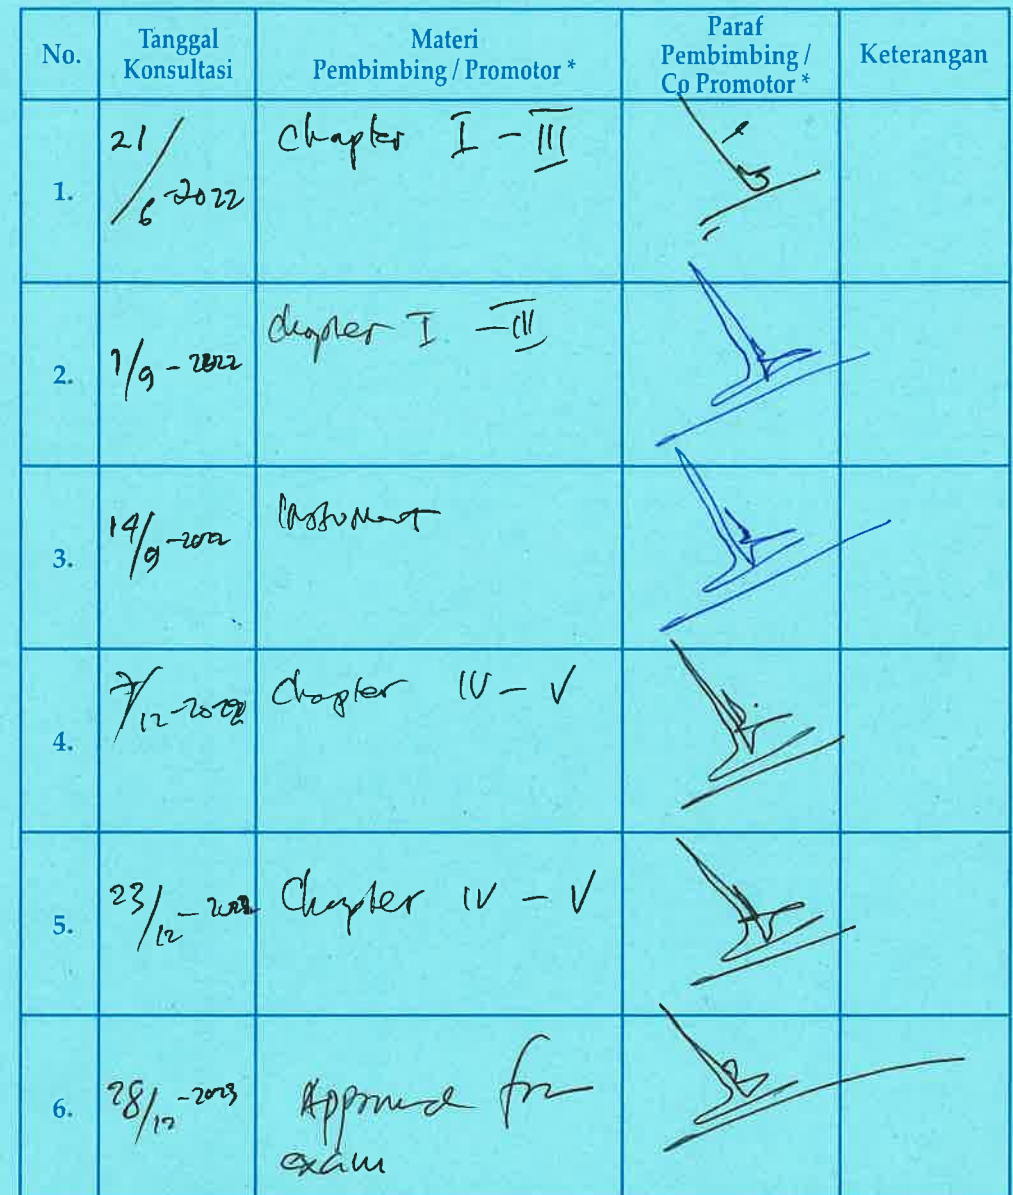 No.
Tanggal
Konsultasi
Materi
Pembimbing / Promotor *
Paraf
Pembimbing /
Co Promotor *
Keterangan
1.
21/6-2022
Chapter I - III
2.
1/9-2022
Chapter I - III
3.
14/9-2022
Instrument
4.
7/12-2022
Chapter IV - V
5.
23/12-
Chapter IV - V
6.
28/12-2023
Approved for
exam